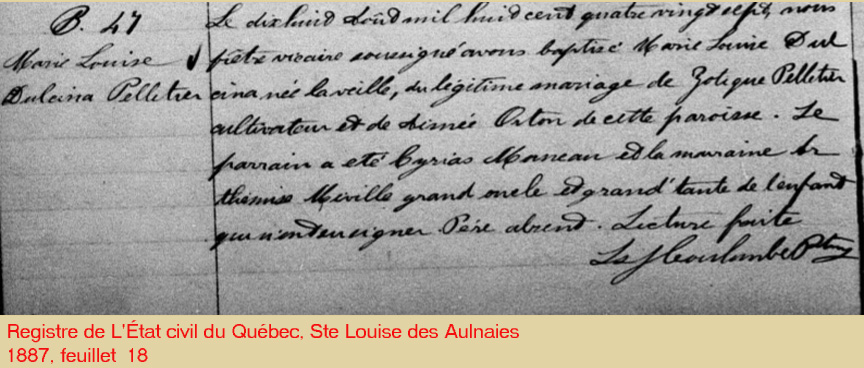 B. 47
Marie Louise
Dulcina Pelletier
Le dixhuid Août mil huid cent quatre vingt sept, nous
prêtre vicaire soussigné avons baptisé Marie Louise Dul
cina née la veille, du légitime mariage de Zotique Pelletier
cultivateur et de Aimée Orton de cette paroisse. Le
parrain a été Cyrias Morneau et la marraine Ar
thémise Miville grand oncle et grand'tante de l'enfant
qui n'ont su signer. Père absent. Lecture faite
Ls J Coulombe Ptre
Registre de L'État civil du Québec, Ste Louise des Aulnaies
1887, feuillet 18